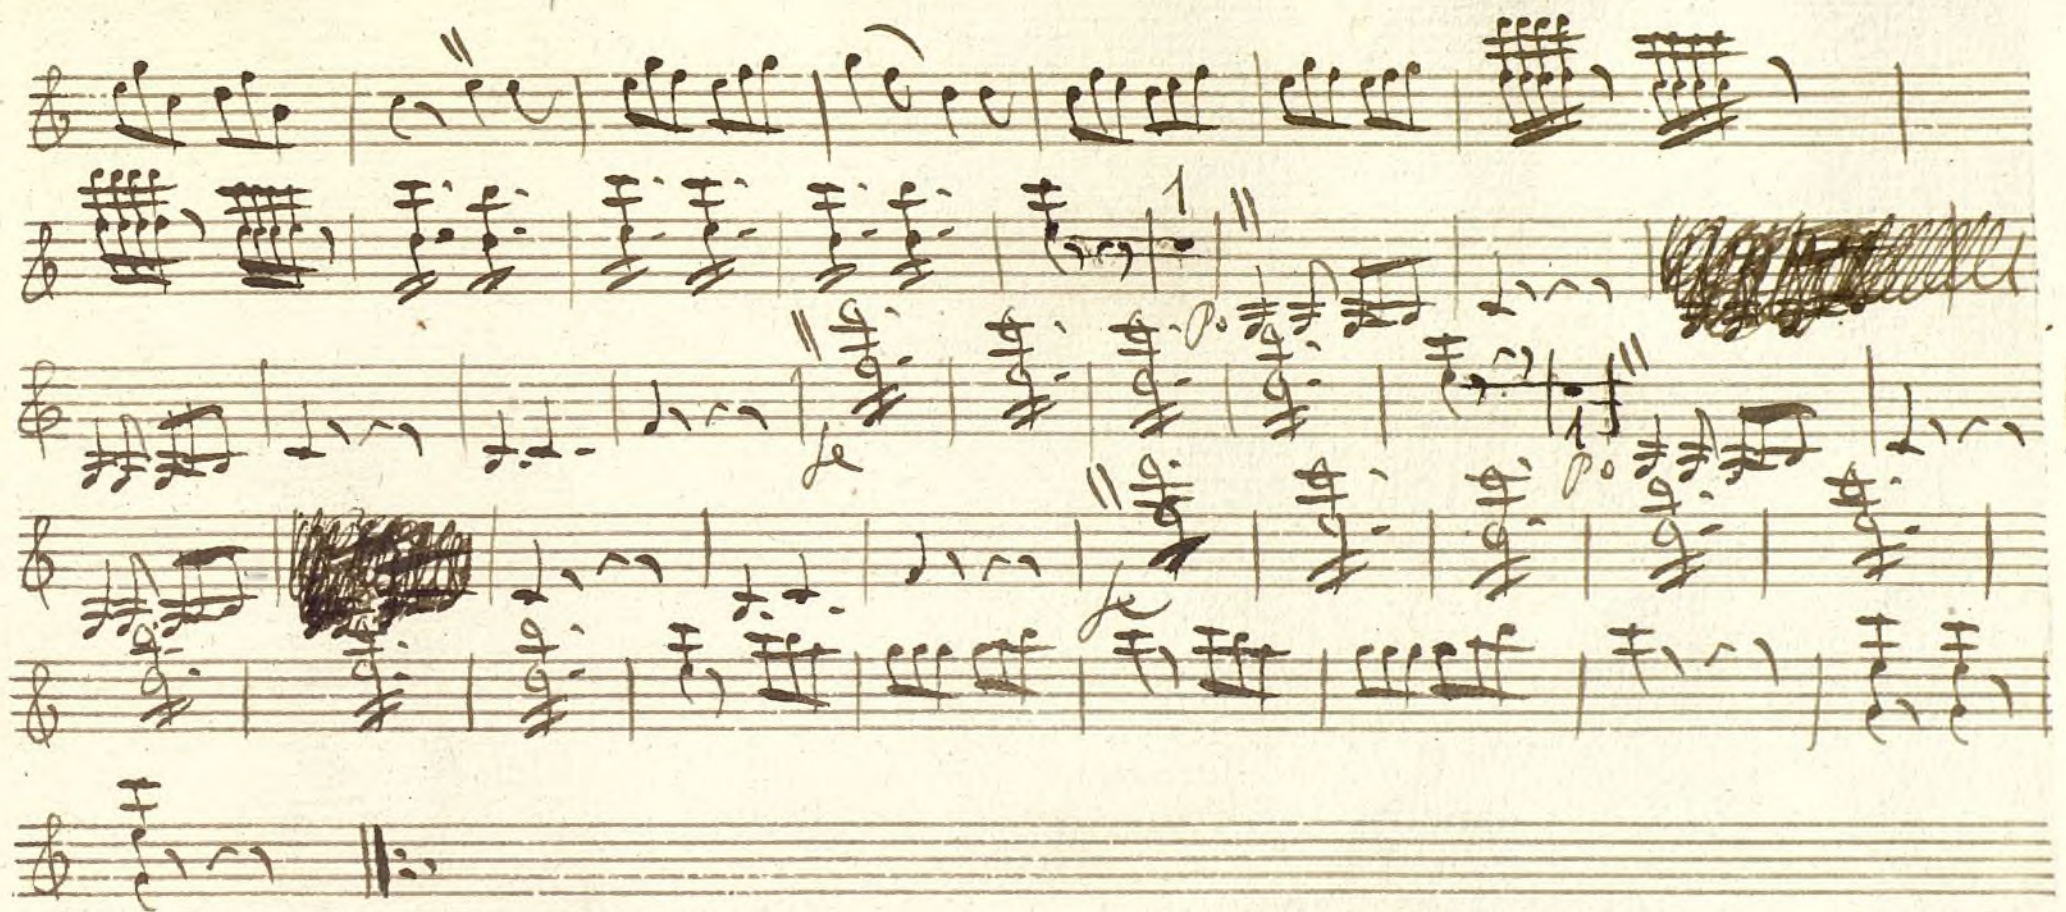 1
po
fe
1
po
fe